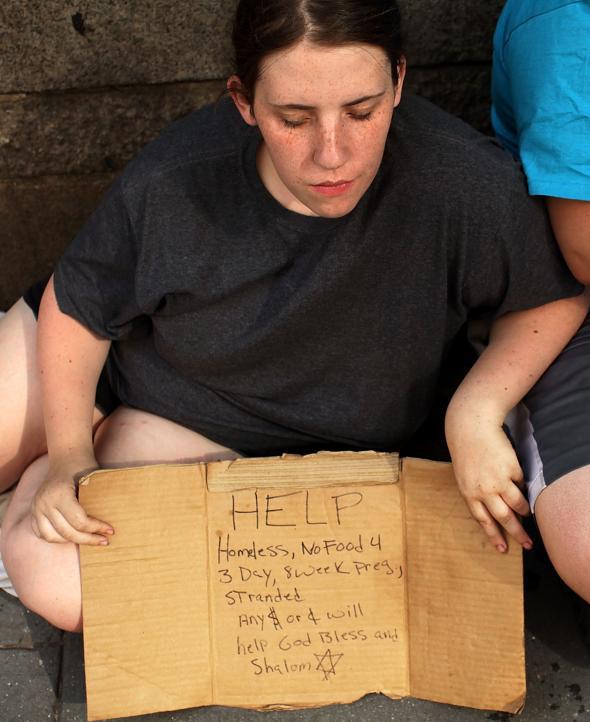 HELP
Homeless, No Food 4
3 Day, 8 week preg.,
Stranded
Any $ or ¢ will
help God Bless and
Shalom ✡